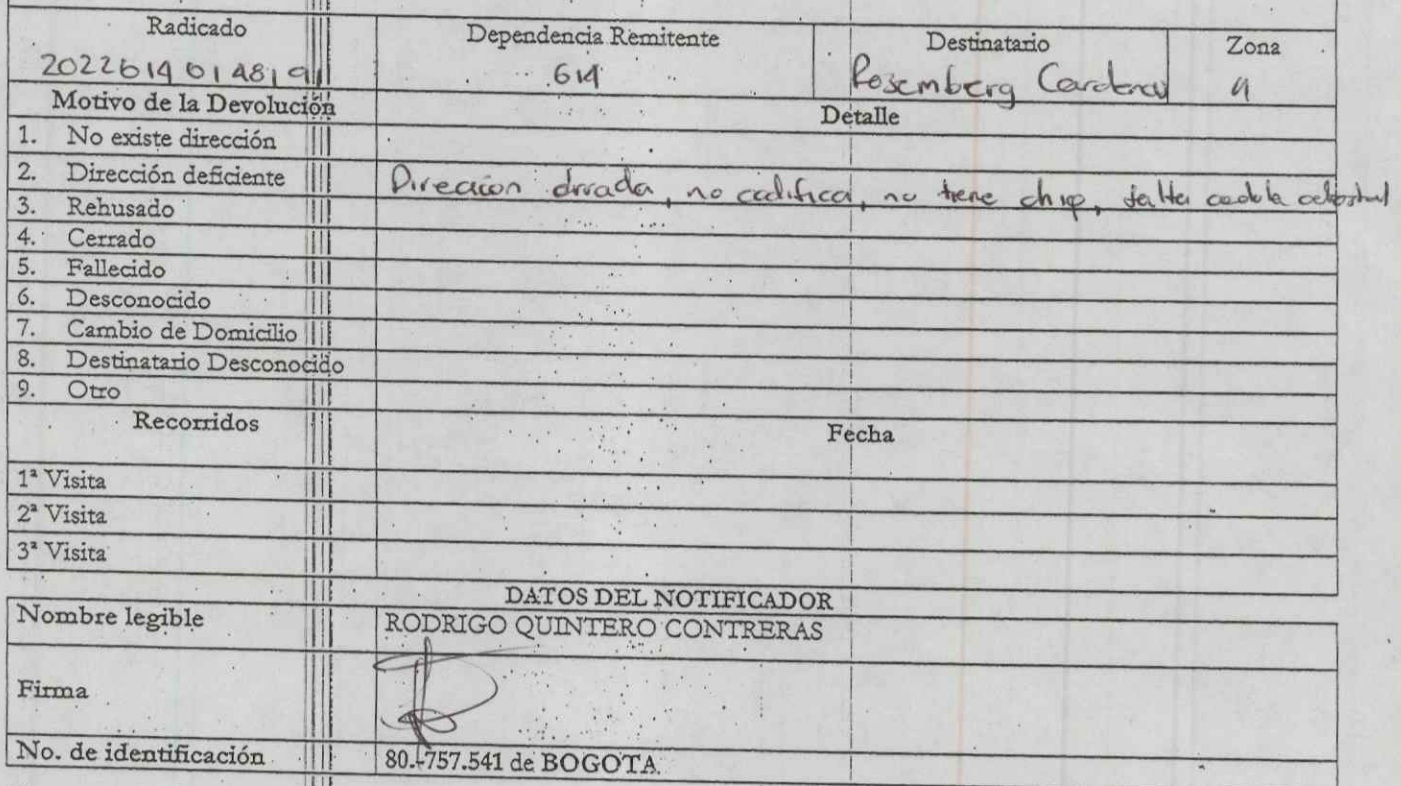 Radicado Dependencia Remitente Destinatario Zona
20226140148191 614 Rosemberg Cardenas 4
Motivo de la Devolución Detalle
1. No existe dirección
2. Dirección deficiente Direccion errada, no codifica, no tiene chip, falta cedula catastral
3. Rehusado
4. Cerrado
5. Fallecido
6. Desconocido
7. Cambio de Domicilio
8. Destinatario Desconocido
9. Otro
Recorridos Fecha
1ª Visita
2ª Visita
3ª Visita
DATOS DEL NOTIFICADOR
Nombre legible RODRIGO QUINTERO CONTRERAS
Firma
No. de identificación 80.757.541 de BOGOTA